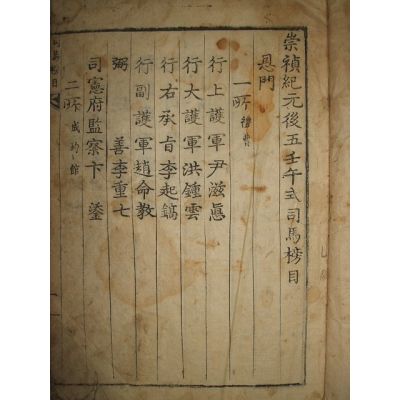 崇禎紀元後五壬午式司馬榜目
恩門
一所 禮曹
行上護軍尹滋悳
行大護軍洪鍾雲
行右承旨李起鎬
行副護軍趙命教
弼善李重七
司憲府監察卞鎏
二所 成均館
司馬榜目